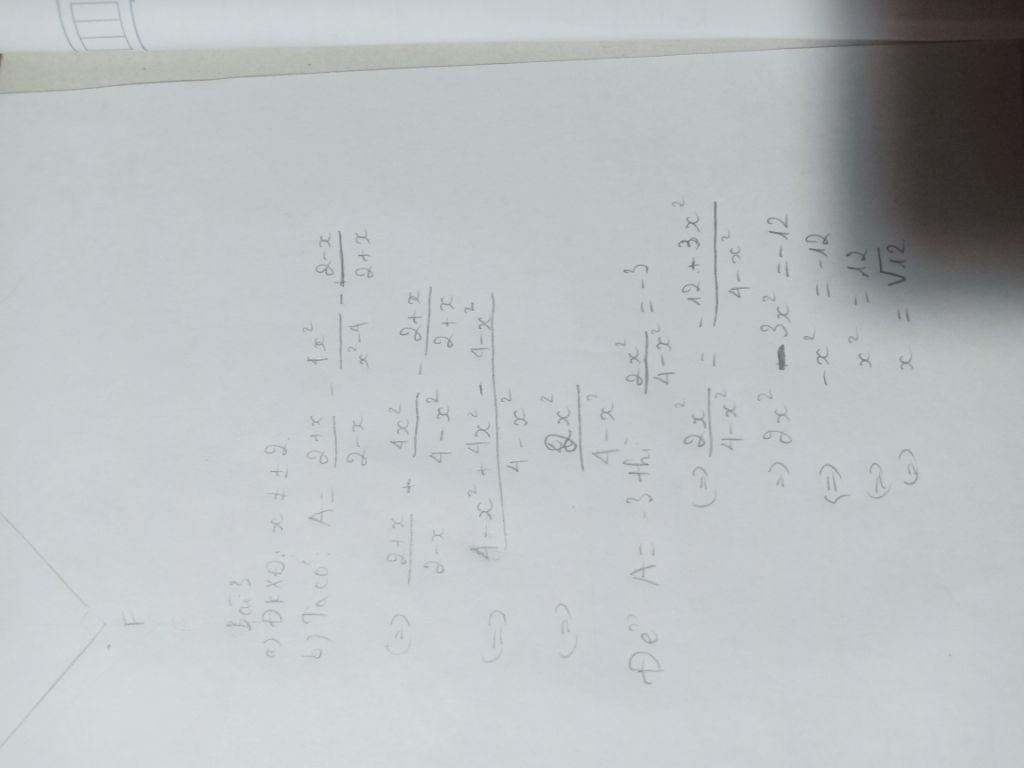 F
Bài 3
a) ĐKXĐ: x ≠ ± 2
b) Ta có: A = \frac{2+x}{2-x} - \frac{4x^2}{x^2-4} - \frac{2-x}{2+x}
(=) \frac{2+x}{2-x} + \frac{4x^2}{4-x^2} - \frac{2+x}{2+x}
(=) \frac{4-x^2+4x^2-4-x^2}{4-x^2}
(=) \frac{2x^2}{4-x^2}
Để A = -3 thì \frac{2x^2}{4-x^2} = -3
(=) \frac{2x^2}{4-x^2} = \frac{-12+3x^2}{4-x^2}
=) 2x^2 - 3x^2 = -12
(=) -x^2 = -12
(=) x^2 = 12
(=) x = \sqrt{12}